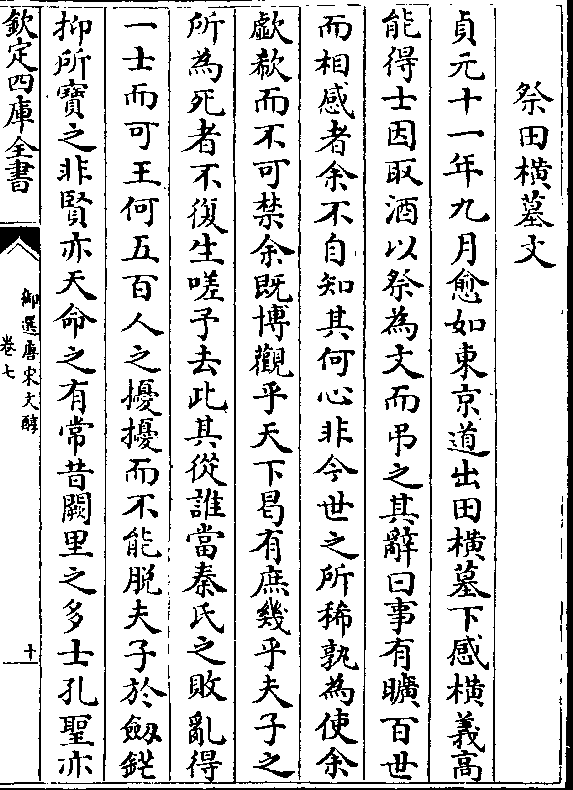 祭田橫墓文
貞元十一年九月愈如東京道出田橫墓下感橫義高
能得士因取酒以祭為文而弔之其辭曰事有曠百世
而相感者余不自知其何心非今世之所稀孰為使余
歔欷而不可禁余既博觀乎天下曷有庶幾乎夫子之
所為死者不復生嗟予去此其從誰當秦氏之敗亂得
一士而可王何五百人之擾擾而不能脫夫子於劔鋩
抑所寶之非賢亦天命之有常昔闕里之多士孔聖亦
欽定四庫全書
御選唐宋文醇
卷七
十